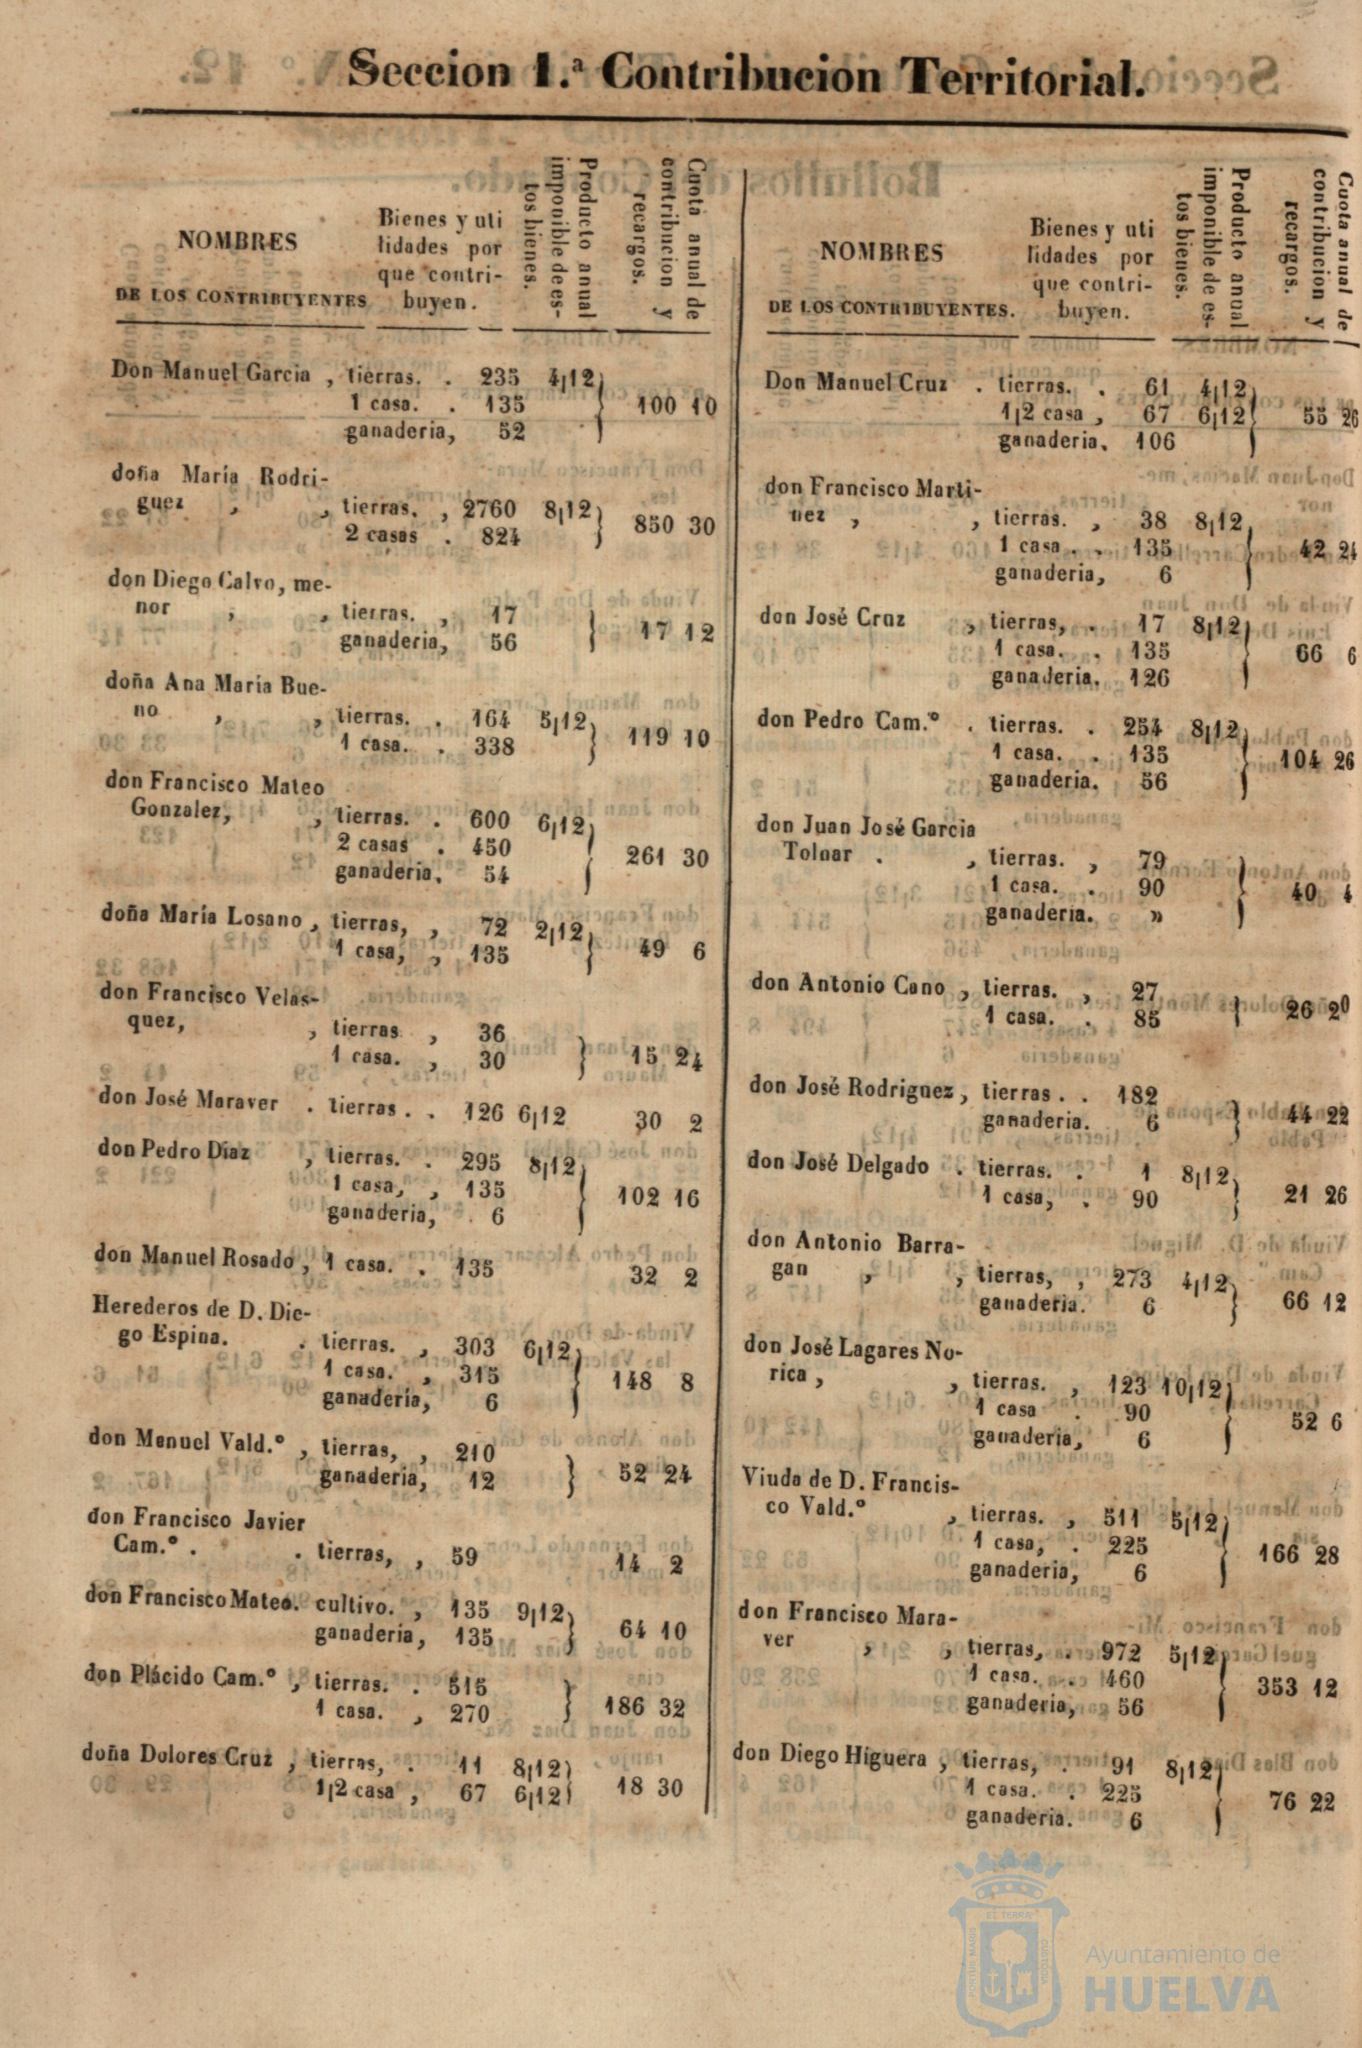 Seccion 1.ª Contribucion Territorial.
NOMBRES
DE LOS CONTRIBUYENTES
Bienes y uti
lidades por
que contri-
buyen.
Producto anual
imponible de es-
tos bienes.
Cuota anual de
contribucion y
recargos.
Don Manuel Garcia , tierras. . 235 4|12
1 casa. . 135 100 10
ganaderia, 52
doña María Rodri-
guez , , tierras. , 2760 8|12
2 casas . 824 850 30
don Diego Calvo, me-
nor , , tierras. , 17
ganaderia, 56 17 12
doña Ana María Bue-
no , , tierras. . 164 5|12
1 casa. . 338 119 10
don Francisco Mateo
Gonzalez, , tierras. . 600 6|12
2 casas . 450 261 30
ganaderia, 54
doña María Losano , tierras, , 72 2|12
1 casa, , 135 49 6
don Francisco Velas-
quez, , tierras , 36
1 casa. , 30 15 24
don José Maraver . tierras . . 126 6|12 30 2
don Pedro Díaz , tierras. . 295 8|12
1 casa, , 135 102 16
ganaderia, . 6
don Manuel Rosado , 1 casa. . 135 32 2
Herederos de D. Die-
go Espina. . tierras. , 303 6|12
1 casa. , 315 148 8
ganadería, 6
don Manuel Vald.º , tierras, , 210
ganaderia, 12 52 24
don Francisco Javier
Cam.º . . tierras, , 59 14 2
don Francisco Mateo. cultivo. , 135 9|12
ganaderia, 135 64 10
don Plácido Cam.º , tierras. . 515
1 casa. , 270 186 32
doña Dolores Cruz , tierras, . 11 8|12
1|2 casa , 67 6|12 18 30
NOMBRES
DE LOS CONTRIBUYENTES.
Bienes y uti
lidades por
que contri-
buyen.
Producto anual
imponible de es-
tos bienes.
Cuota anual de
contribucion y
recargos.
Don Manuel Cruz . tierras. . 61 4|12
1|2 casa , 67 6|12 55 26
ganaderia. 106
don Francisco Marti-
nez , , tierras. , 38 8|12
1 casa . . 135 42 24
ganaderia, 6
don José Cruz , tierras, . 17 8|12
1 casa. . 135 66 6
ganaderia. 126
don Pedro Cam.º . tierras. . 254 8|12
1 casa. . 135 104 26
ganaderia. 56
don Juan José Garcia
Tolnar . , tierras. , 79
1 casa. . 90 40 4
ganaderia. »
don Antonio Cano , tierras. , 27
1 casa. . 85 26 20
don José Rodriguez, tierras . . 182
ganaderia. 6 44 22
don José Delgado . tierras. . 1 8|12
1 casa, . 90 21 26
don Antonio Barra-
gan , , tierras, , 273 4|12
ganaderia. 6 66 12
don José Lagares No-
rica , , tierras. , 123 10|12
1 casa . 90 52 6
ganaderia, 6
Viuda de D. Francis-
co Vald.º , tierras. , 511 5|12
1 casa, . 225 166 28
ganaderia, 6
don Francisco Mara-
ver , , tierras, . 972 5|12
1 casa. . 460 353 12
ganaderia, 56
don Diego Higuera , tierras, . 91 8|12
1 casa. . 225 76 22
ganaderia. 6
Ayuntamiento de
HUELVA